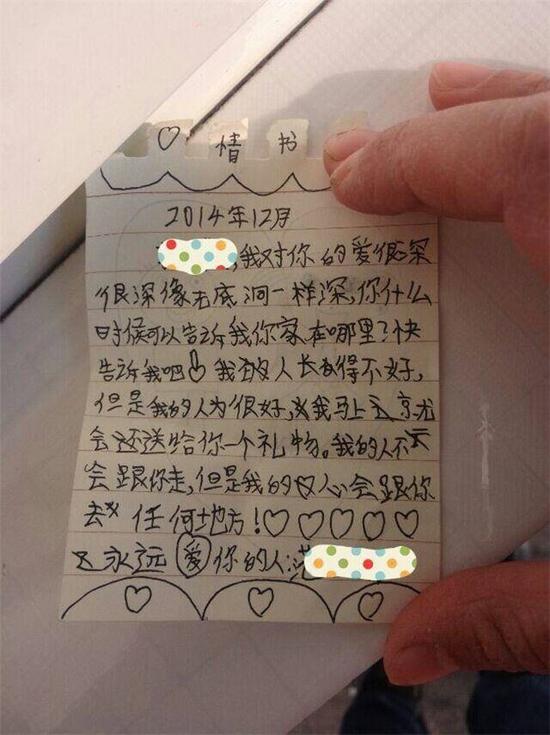 ♡ 情书
2014年12月
,我对你的爱很深
很深像无底洞一样深,你什么
时候可以告诉我你家在哪里?快
告诉我吧 我的人长得不好,
但是我的人为很好,我马上就
会还送给你一个礼物。我的人不
会跟你走,但是我的心会跟你
去 任何地方!♡♡♡♡♡
永远爱你的人: